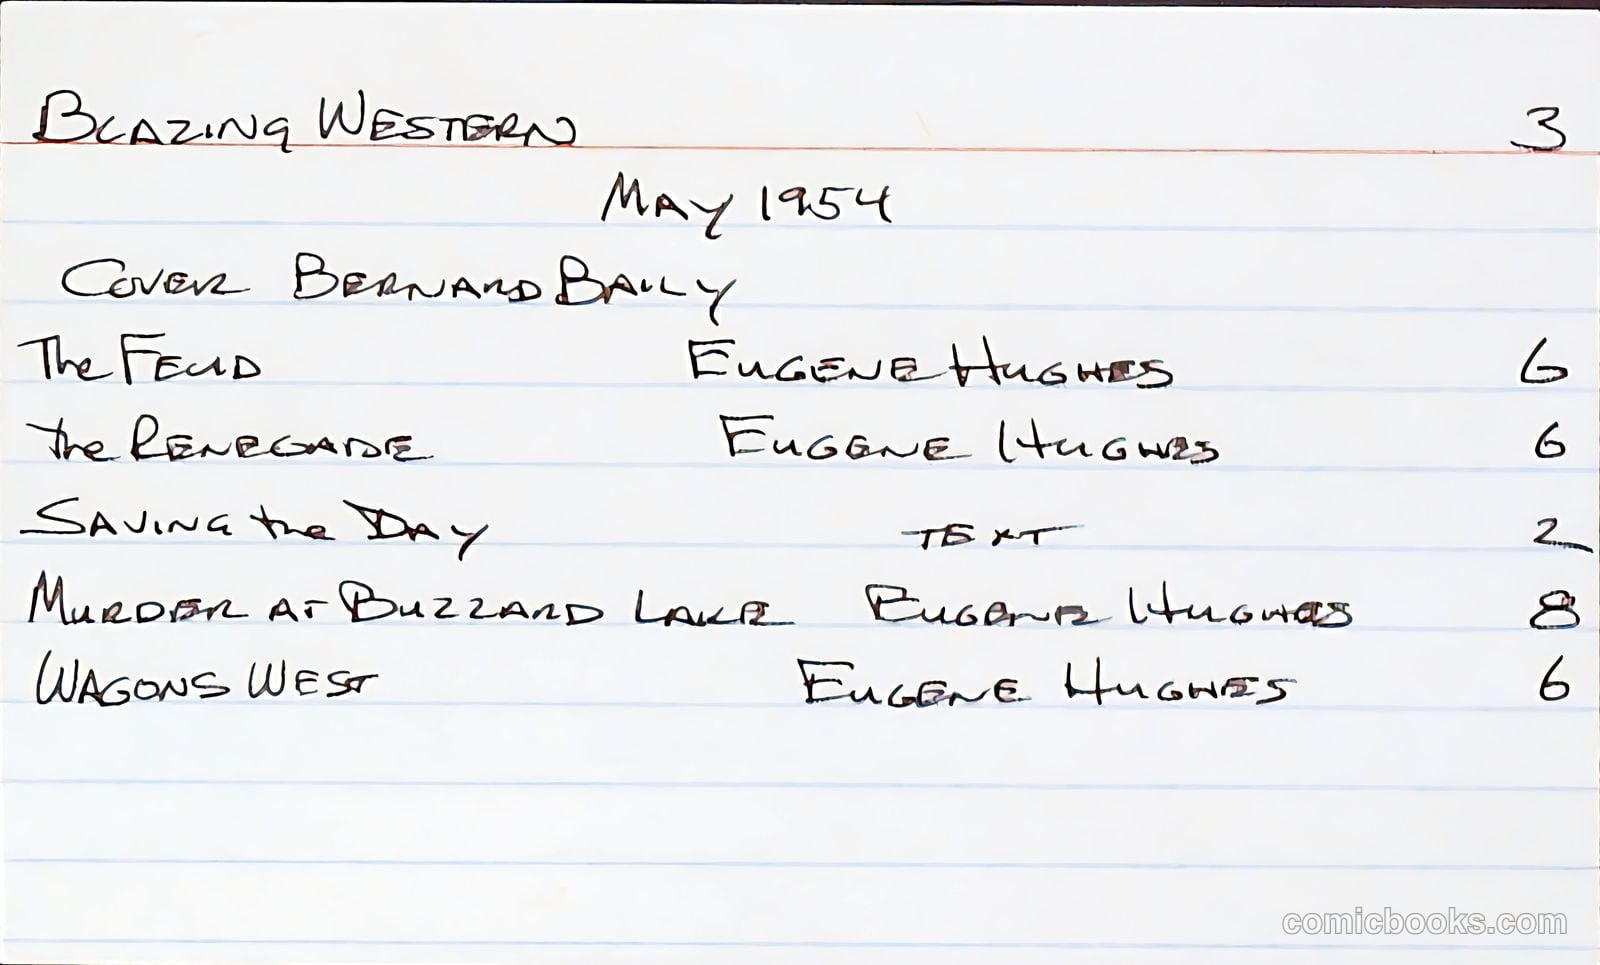 BLAZING WESTERN 3
MAY 1954
COVER BERNARD BAILY
The FEUD EUGENE HUGHES 6
The RENEGADE EUGENE HUGHES 6
SAVING the DAY TEXT 2
MURDER AT BUZZARD LAKE EUGENE HUGHES 8
WAGONS WEST EUGENE HUGHES 6
comicbooks.com